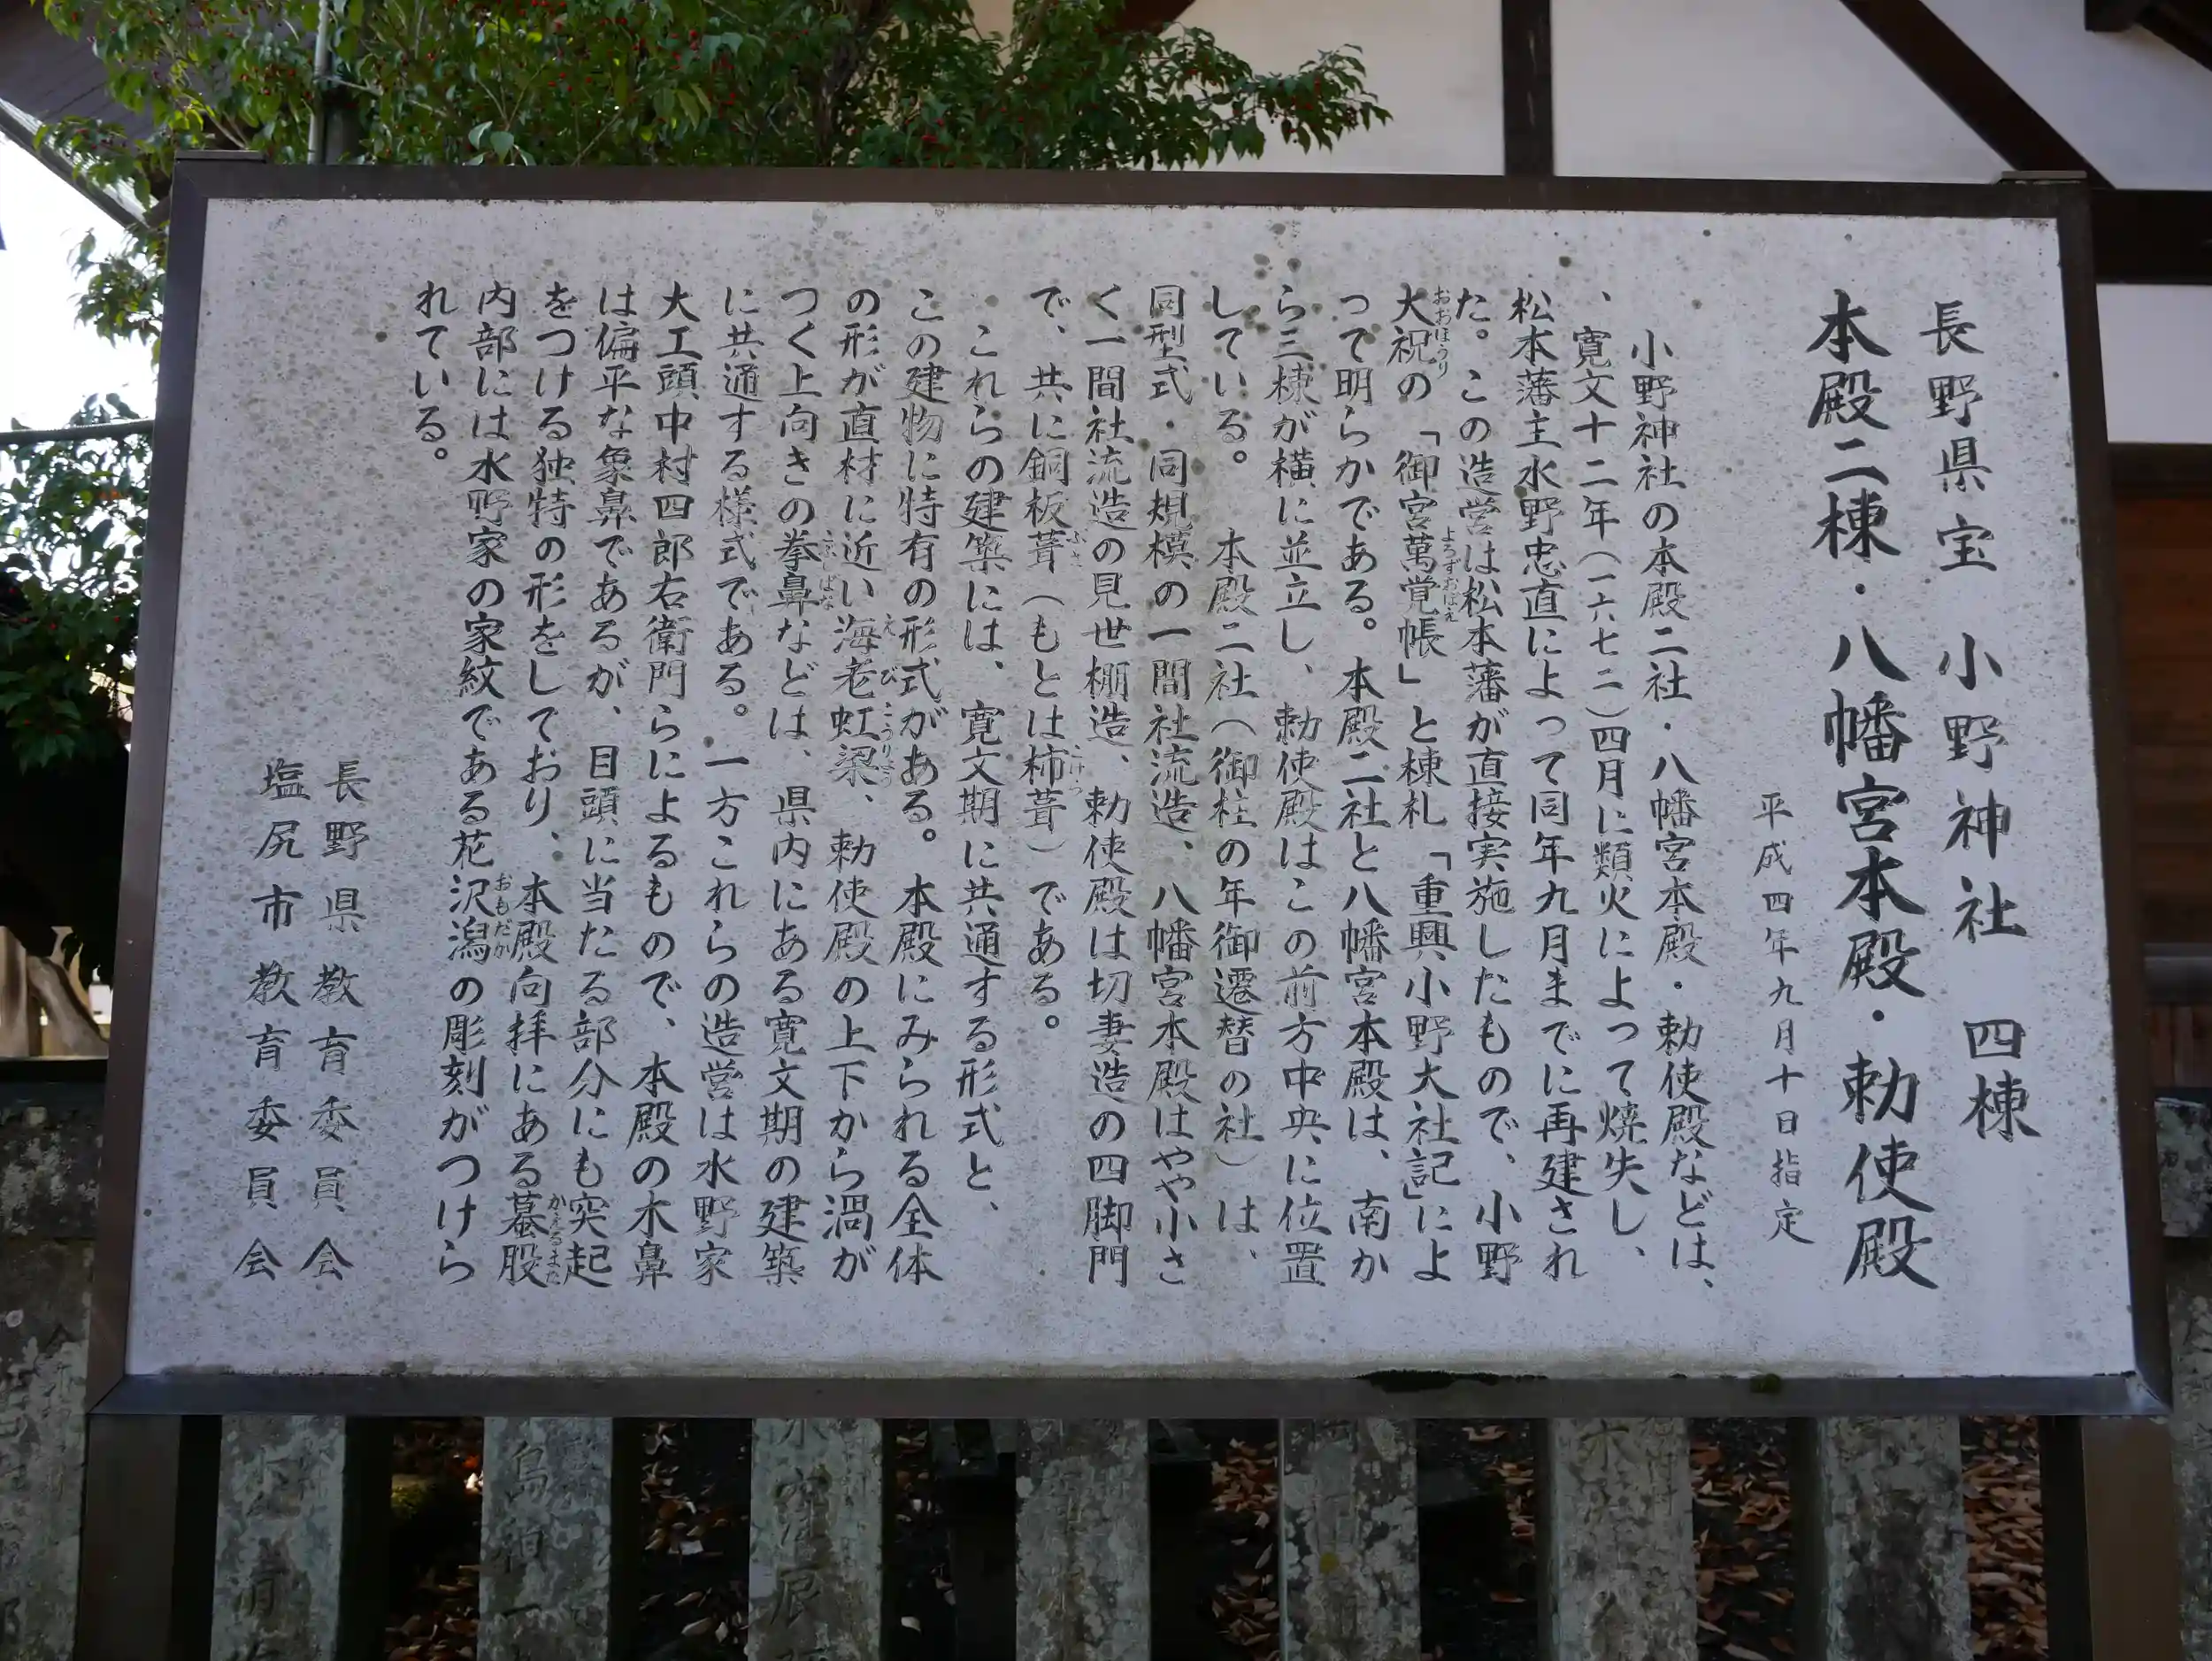 長野県宝 小野神社 四棟
本殿二棟・八幡宮本殿・勅使殿
平成四年九月十日指定
小野神社の本殿二社・八幡宮本殿・勅使殿などは、
、寛文十二年（一六七二）四月に類火によって焼失し、
松本藩主水野忠直によって同年九月までに再建され
た。この造営は松本藩が直接実施したもので、小野
大祝の「御宮萬覚帳」と棟札「重興小野大社記」によ
おおほうり
よろずおぼえ
って明らかである。本殿二社と八幡宮本殿は、南か
ら三棟が横に並立し、勅使殿はこの前方中央に位置
している。 本殿二社（御柱の年御遷替の社）は、
同型式・同規模の一間社流造、八幡宮本殿はやや小さ
く一間社流造の見世棚造、勅使殿は切妻造の四脚門
で、共に銅板葺（もとは杮葺）である。
これらの建築には、寛文期に共通する形式と、
この建物に特有の形式がある。本殿にみられる全体
の形が直材に近い海老虹梁、勅使殿の上下から渦が
えびこうりょう
つく上向きの拳鼻などは、県内にある寛文期の建築
に共通する様式である。一方これらの造営は水野家
大工頭中村四郎右衛門らによるもので、本殿の木鼻
は偏平な象鼻であるが、目頭に当たる部分にも突起
をつける独特の形をしており、本殿向拝にある蟇股
かえるまた
内部には水野家の家紋である花沢潟の彫刻がつけら
おもだか
れている。
長野県教育委員会
塩尻市教育委員会